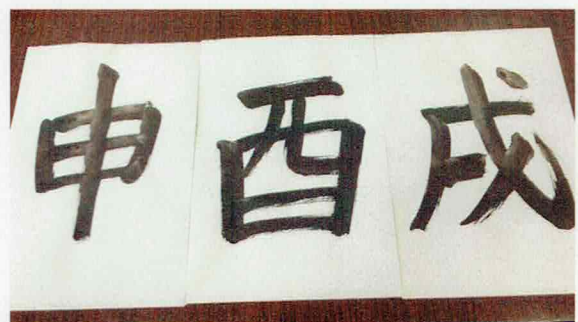 申酉戌